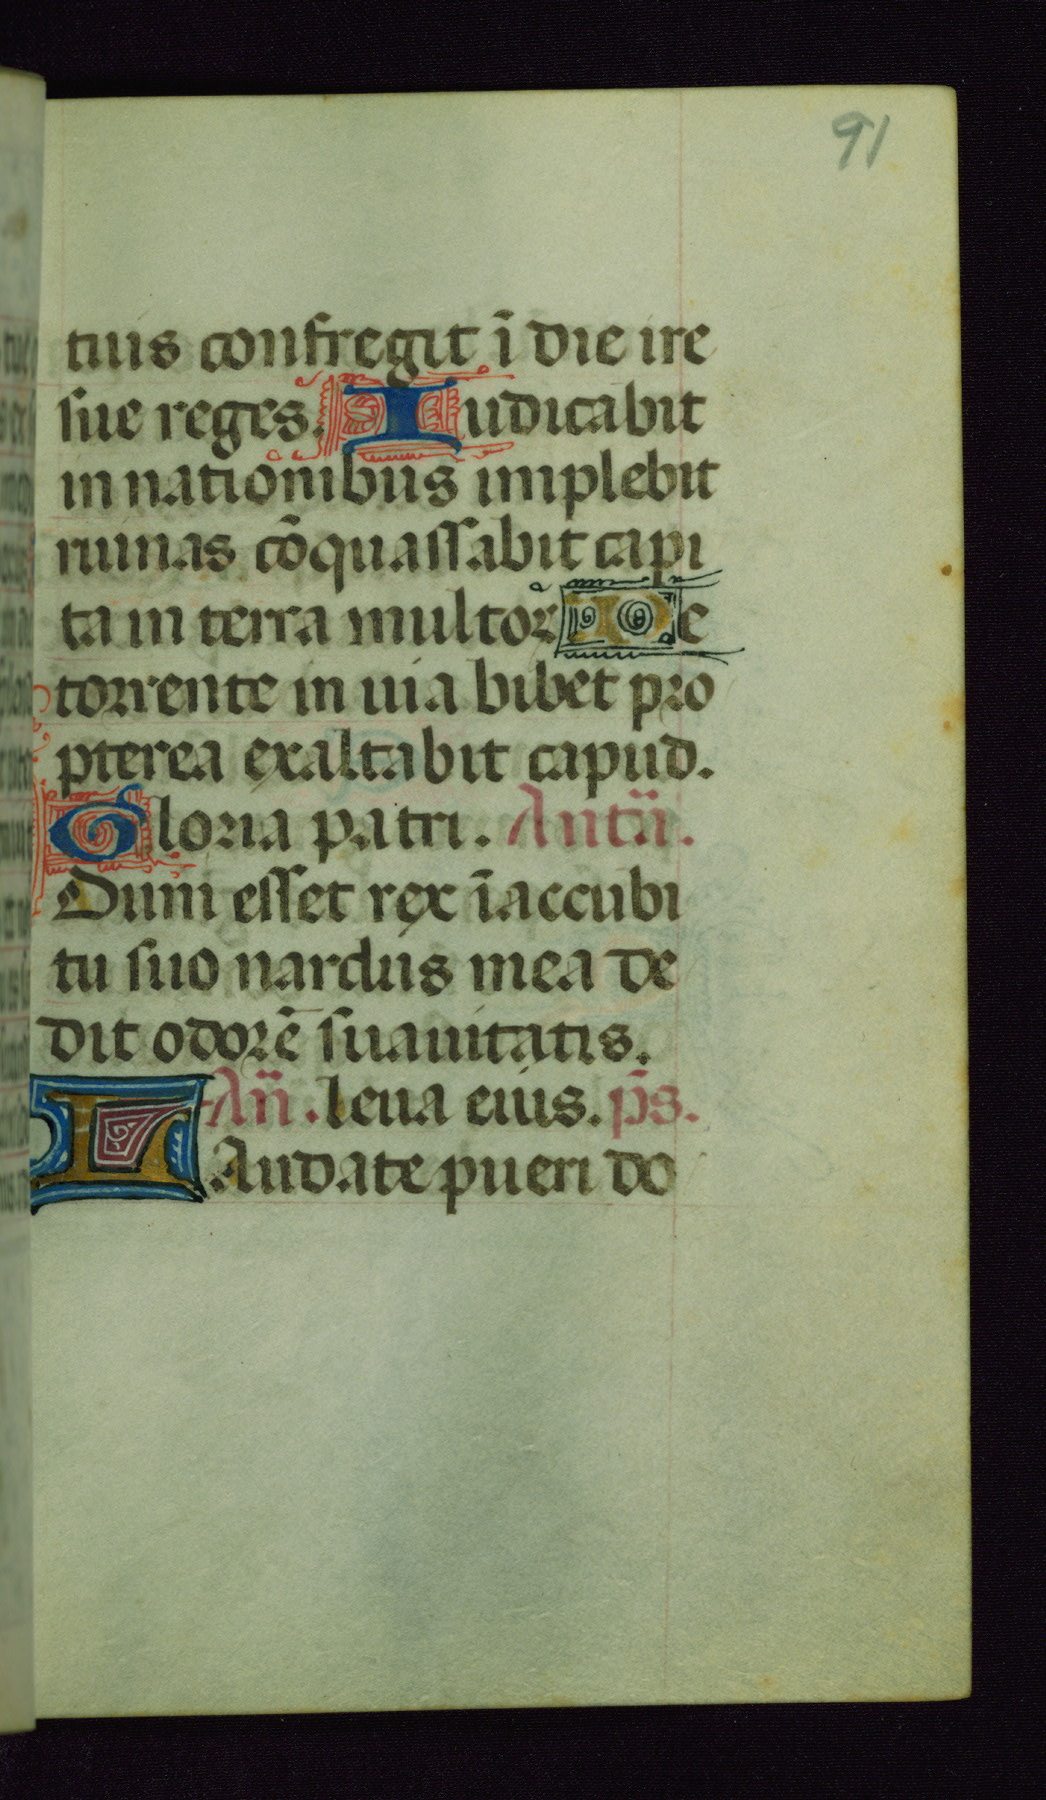 91
tuus confregit ĩ die ire
sue reges. Iudicabit
in nationibus implebit
ruinas cõquassabit capi
ta in terra multoꝝ De
torrente in uia bibet pro
pterea exaltabit capud.
Gloria patri. Antã.
Dum esset rex ĩ accubi
tu suo nardus mea de
dit odorẽ suauitatis.
Añ. leua eius. p̃s.
Laudate pueri do